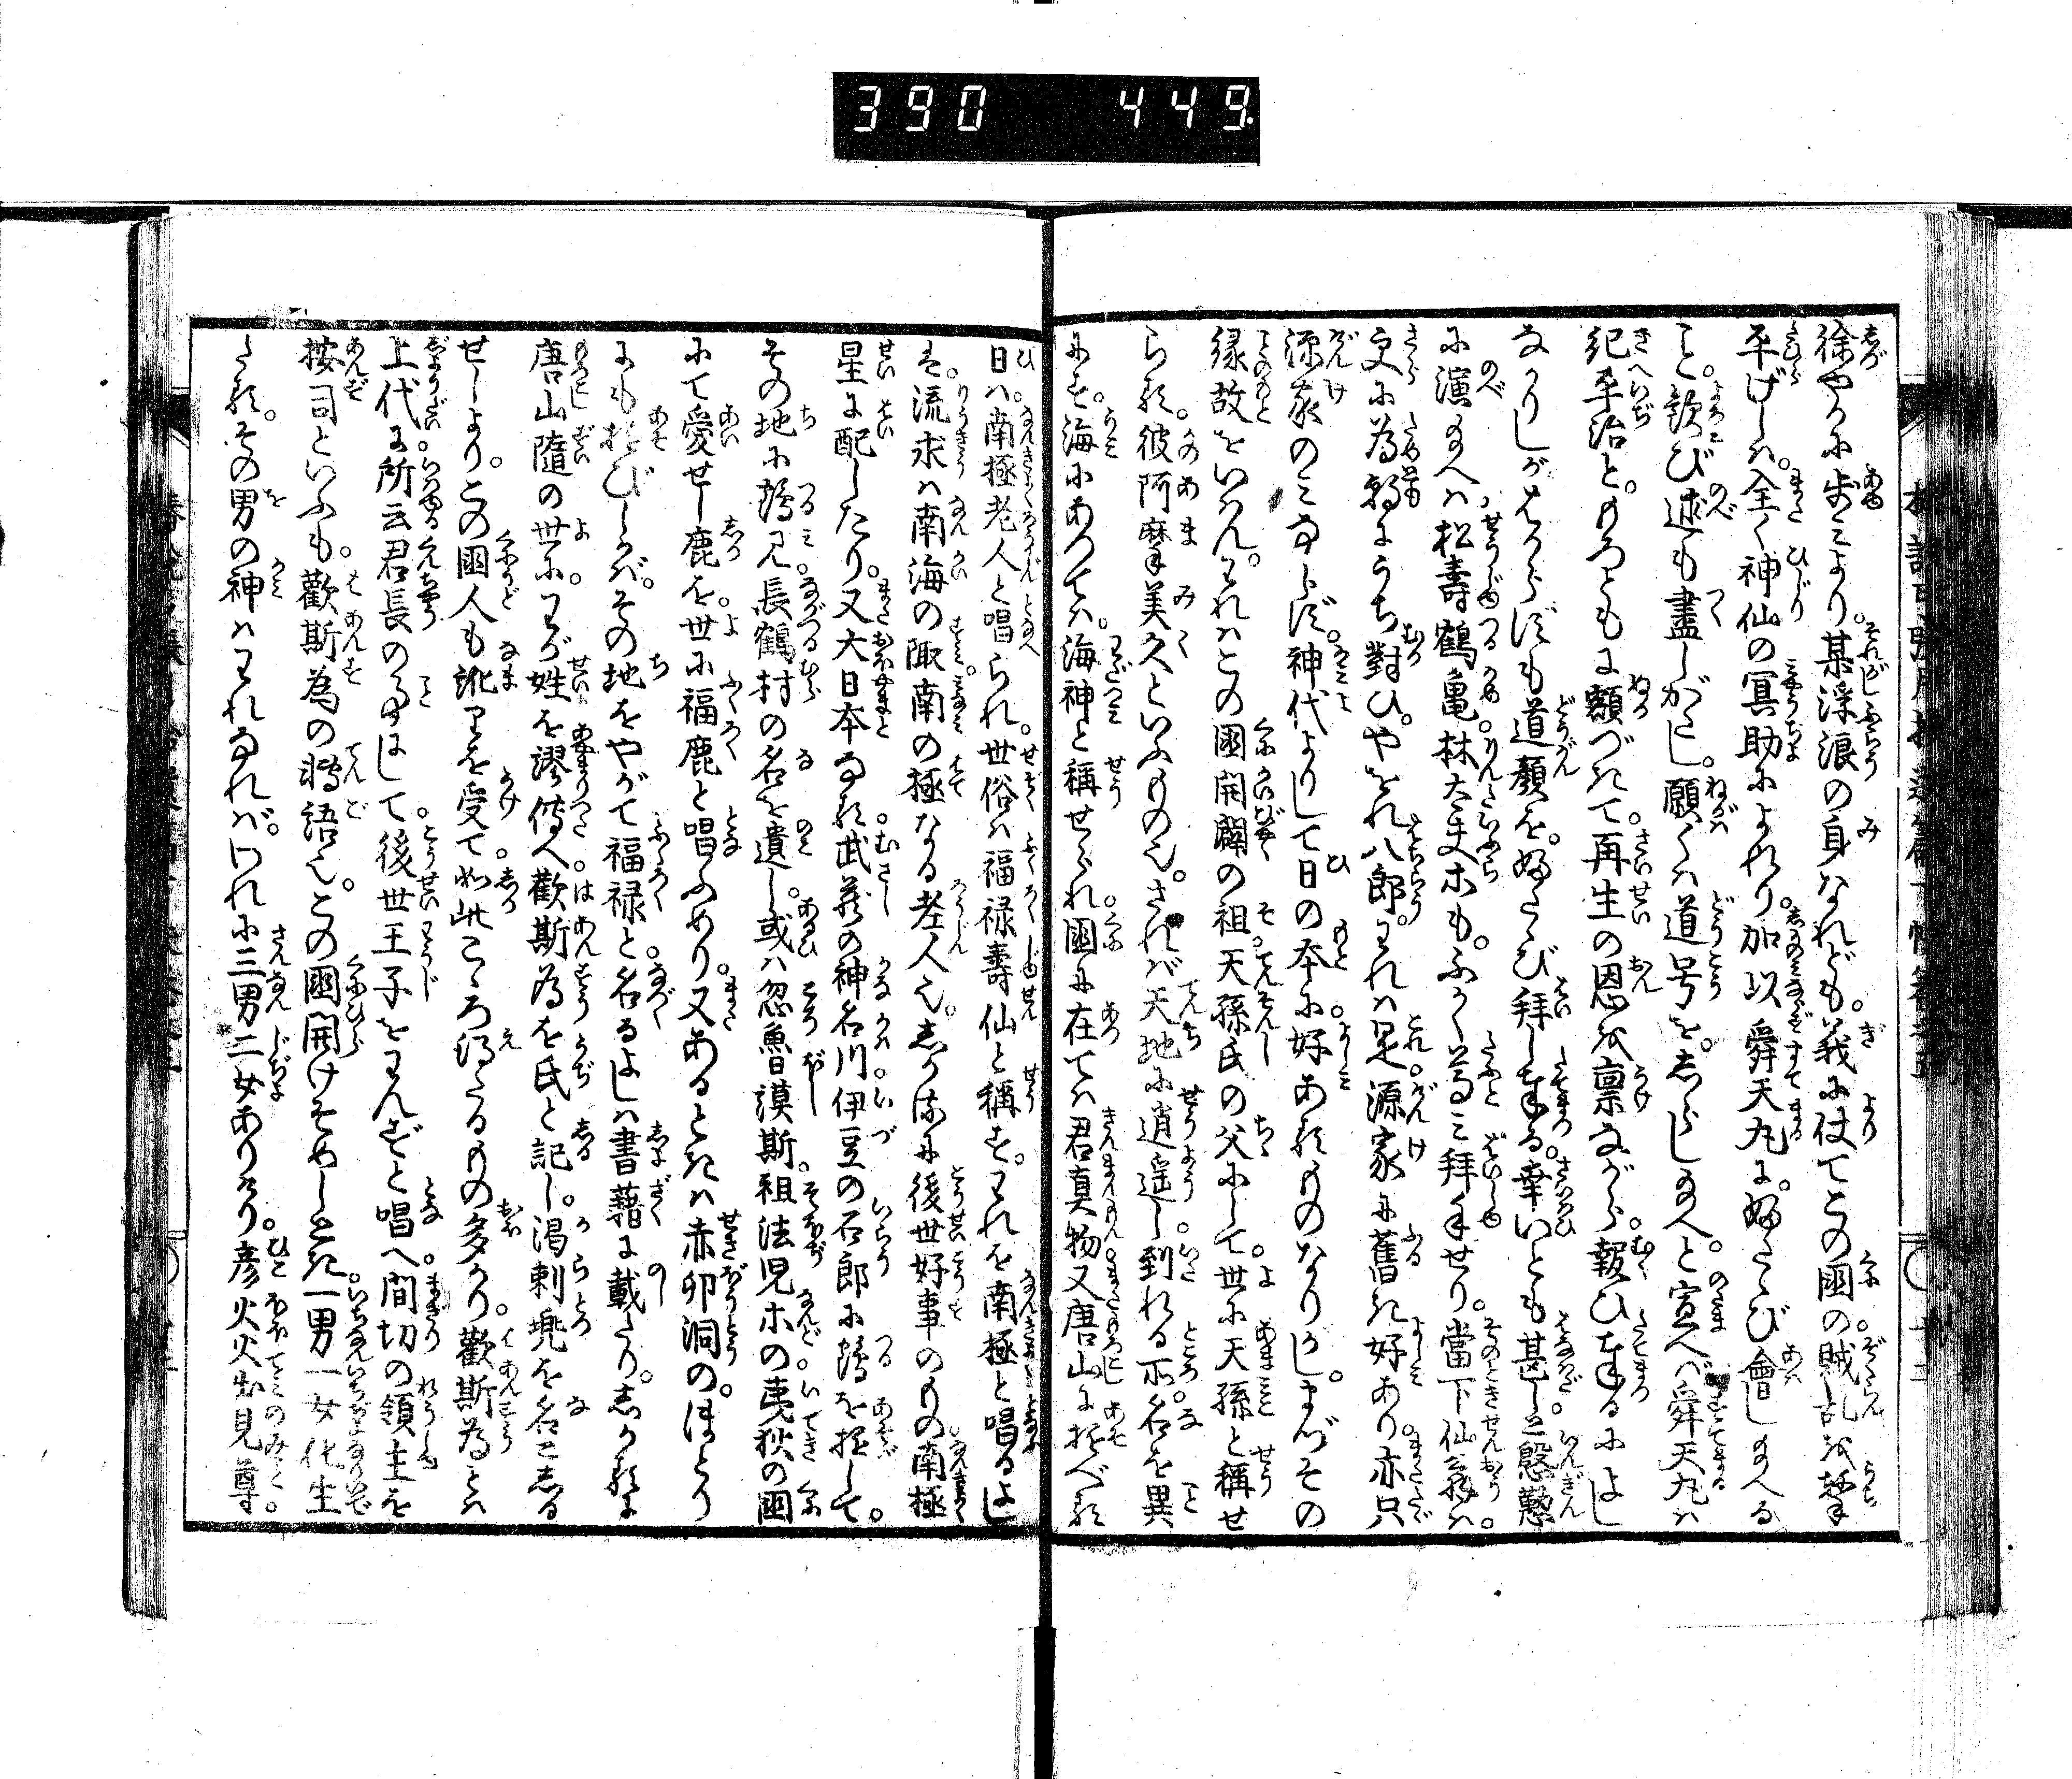 390 449
徐やかに歩みより。某浮浪の身なれども。義に仗てこの國の。賊乱を撃
平げしは。全く神仙の冥助によれり。加以舜天丸に。ふたゝび會し給へる
こと。歓び述も盡しがたし。願くは道号を。しらし給へ。と宣へば舜天丸は
紀平治と。もろともに額づきて。再生の恩を禀ながら。報ひ奉るによし
なかりしがはからずも道顔を。ふたゝび拝し奉る。幸いとも甚しと慇懃
に演給へは松壽鶴亀林太夫ホも。ふかく尊み拝手せり。當下仙翁は。
更に為朝にうち對ひ。やをれ八郎。われは是源家に舊き好あり。亦只
源家のみならず。神代よりして日の本に。好あるものなりかし。まづその
縁故をいはん。われはこの國開闢の祖。天孫氏の父にして。世に天孫と稱せ
らる。彼阿摩美久といふもの也。されば天地に逍遥し。到れる所。名を異
にす。海にあつては。海神と稱せられ。國に在ては君真物。又唐山に遊べる
日は。南極老人と唱られ。世俗は福禄壽仙と稱す。われを南極と唱るよし
は。流求は南海の陬。南の極なる老人也。しかるに後世好事のもの南極
星に配したり。又大日本なる。武蔵の神名川。伊豆の石郎に鶴を放して。
その地に鶴見。長鶴村の名を遺し。或は忽魯謨斯。祖法児ホの夷狄の國
にて愛せし鹿を。世に福鹿と唱ふめり。又あるときは赤卯洞の。ほとり
にも遊びしかば。その地をやがて福禄と。名るよしは書藉に載たり。しかるに
唐山隨の世に。わが姓を謬傳へ。歡斯為を氏と記し。渇剌兠を名としる
せしより。この國人も訛りを受て。如此こゝろ得たるもの多かり。歡斯為とは
上代に。所云君長の事にして。後世王子をわんずと唱へ。間切の領主を
按司といふも。歡斯為の轉語也。この國開けそめしとき。一男一女化生
たる。その男の神はわれなれば。われに三男二女ありけり。彦火火出見尊。